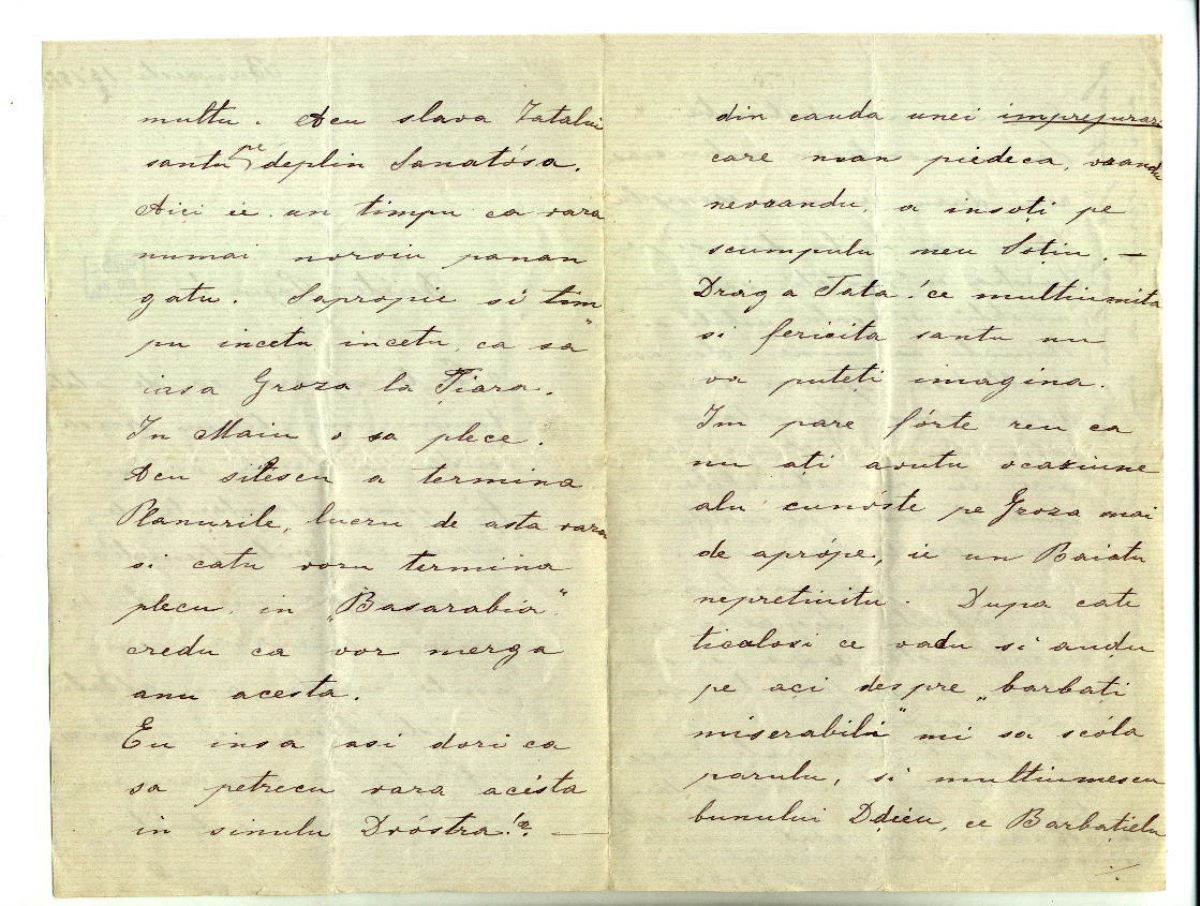 multu. Acu slava Tatalui
santu pe deplin Sanatósa.
Aici ie un timpu ca vara
numai noroiu panan
gatu. Sapropie si tim„
pu incetu incetu, ca sa
iasa Groza la Țiara.
In Maiu o sa plece.
Acu silescu a termina
Planurile, lucru de asta vara
si catu voru termina
plecu in „Basarabia”.
credu ca vor merga
anu acesta.
Eu insa asi dori ca
sa petrecu vara acésta
in sinulu Dvóstra!? —
din cauda unei imprejurari
care nvan piedeca, vrandu
nevrandu, a insoți pe
scumpulu meu Soțiu. —
Draga Tata! ce multiumita
si fericita santu nu
va puteți imagina.
Im pare fórte reu ca
nu ați avutu ocaziune
alu cunóste pe Groza mai
de aprópe, ie un Baiatu
nepretiuitu. Dupa cate
ticalosi ce vadu si audu
pe ači despre „barbați
miserabili” mi sa scóla
parulu, si multiumescu
bunului Ddieu, ce Barbațielu